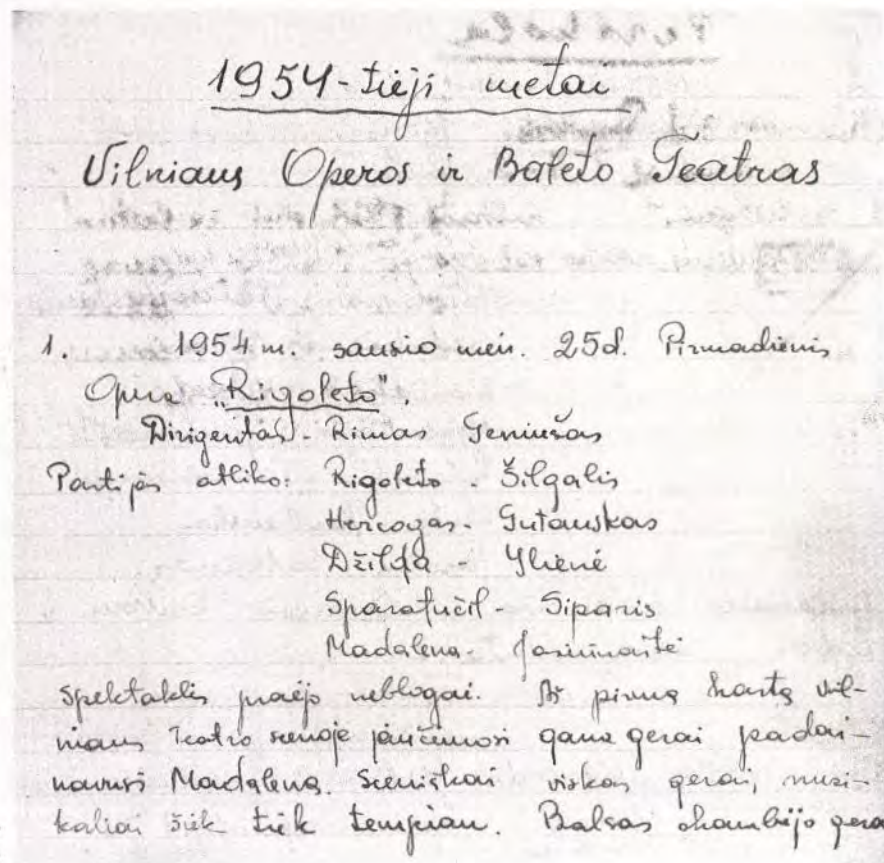 1954-tieji metai
Vilniaus Operos ir Baleto Teatras
1. 1954 m. sausio mėn. 25d. Pirmadienis
Opera „Rigoleto".
Dirigentas - Rimas Geniušas
Partijas atliko: Rigoleto - Šilgalis
Hercogas - Gutauskas
Džilda - Ylienė
Sparafučil - Siparis
Madalena - Jasiūnaitė
Spektaklis praėjo neblogai. Aš pirmą kartą Vil-
niaus Teatro scenoje jaučiausi gana gerai padai-
navusi Madaleną. Sceniškai viskas gerai, muzi-
kaliai šiek tiek tempiau. Balsas skambėjo gera